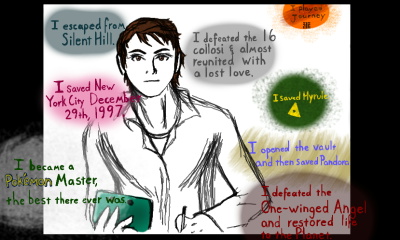 I played
Journey
I escaped from
Silent Hill.
I defeated the 16
collosi & almost
reunited with
a lost love.
I saved New
York City December
29th, 1997
I saved Hyrule
I opened the vault
and then saved Pandora
I became a
Pokémon Master,
the best there ever was.
I defeated the
One-winged Angel
and restored life
to the Planet.